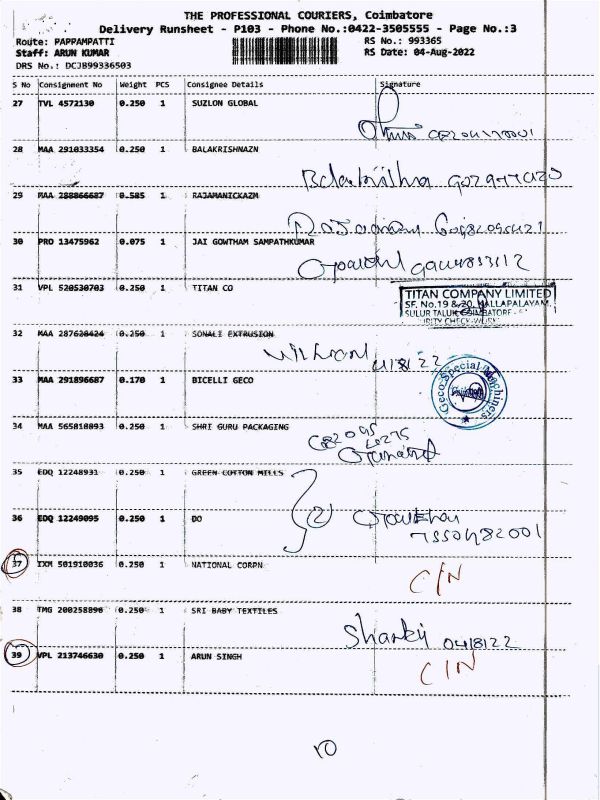 THE PROFESSIONAL COURIERS, Coimbatore
Delivery Runsheet - P103 - Phone No.:0422-3505555 - Page No.:3
Route: PAPPAMPATTI RS No.: 993365
Staff: ARUN KUMAR RS Date: 04-Aug-2022
DRS No.: DCJB99336503
S No Consignment No Weight PCS Consignee Details Signature
27 TVL 4572130 0.250 1 SUZLON GLOBAL
28 MAA 291033354 0.250 1 BALAKRISHNAZN
Balakrishna
29 MAA 288866687 0.585 1 RAJAMANICKAZM
30 PRO 13475962 0.075 1 JAI GOWTHAM SAMPATHKUMAR
31 VPL 520530703 0.250 1 TITAN CO
TITAN COMPANY LIMITED
SF. No.19 & 20, NALLAPALAYAM,
SULUR TALUK COIMBATORE
32 MAA 287628424 0.250 1 SONALI EXTRUSION
4/8/22
33 MAA 291896687 0.170 1 BICELLI GECO
Geco Special Machiners
34 MAA 565818893 0.250 1 SHRI GURU PACKAGING
35 EDQ 12248931 0.250 1 GREEN COTTON MILLS
36 EDQ 12249095 0.250 1 DO
2
7550482001
37 IXM 501910036 0.250 1 NATIONAL CORPN
C/N
38 TMG 200258896 0.250 1 SRI BABY TEXTILES
04/8/22
39 VPL 213746630 0.250 1 ARUN SINGH
C/N
10